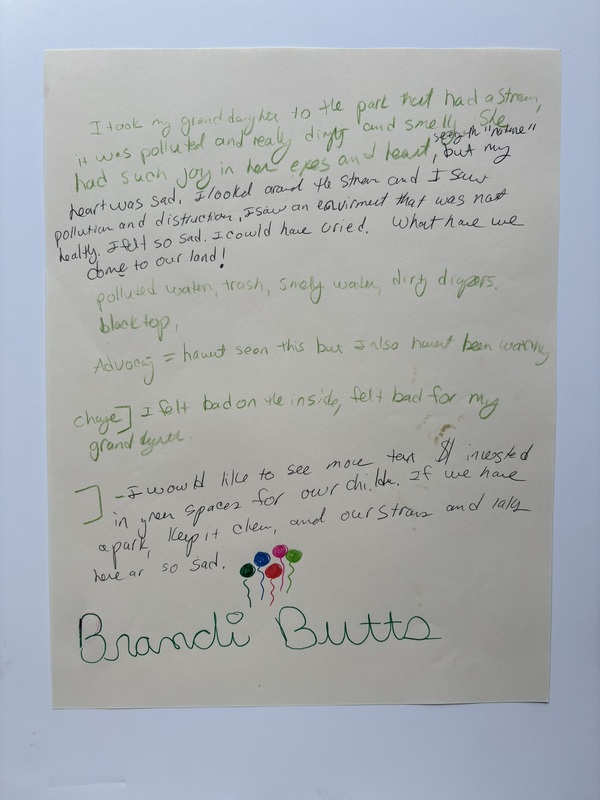 I took my grand daughter to the park that had a stream,
it was polluted and really dirty and smelly. She
had such joy in her eyes and heart, seeing the "nature" but my
heart was sad. I looked around the stream and I saw
pollution and distruction, I saw an enviirment that was not
healty. I felt so sad. I could have cried. What have we
come to our land!
polluted water, trash, smelly water, dirty diapers.
blacktop,
Advocacy = havnt seen this but I also havent been watching
change] I felt bad on the inside, felt bad for my
grand
] - I would like to see more tax $ invested
in green spaces for our childr. If we have
a park, keep it clean, and our streams and
here ar so sad.
Brandi Butts